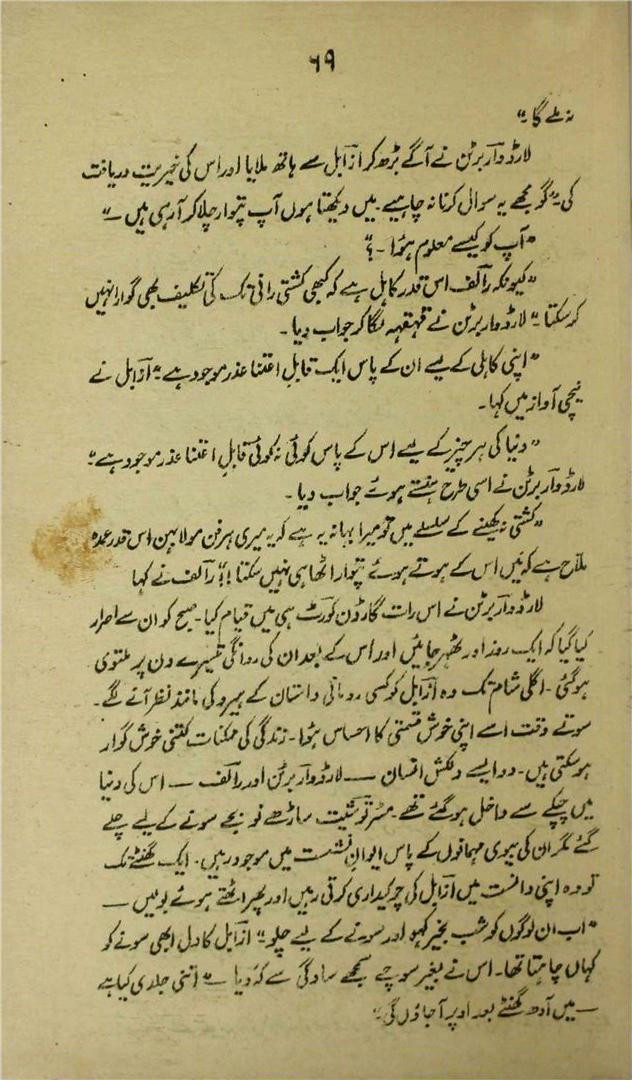 ۶۹
نہ ملے گا۔“
لارڈ وآربرٹن نے آگے بڑھ کر ازآبل سے ہاتھ ملایا اور اس کی خیریت دریافت
کی۔ ”گو مجھے یہ سوال کرنا نہ چاہیے۔ میں دیکھتا ہوں آپ پتوار چلا کر آ رہی ہیں۔“
”آپ کو کیسے معلوم ہؤا۔؟“
”کیونکہ رآلف اس قدر کاہل ہے کہ کبھی کشتی رانی تک کی تکلیف بھی گوارا نہیں
کر سکتا۔“ لارڈ وآربرٹن نے قہقہہ لگا کر جواب دیا۔
”اپنی کاہلی کے لیے ان کے پاس ایک قابلِ اعتنا عذر موجود ہے۔“ ازآبل نے
نیچی آواز میں کہا۔
”دنیا کی ہر چیز کے لیے اس کے پاس کوئی نہ کوئی قابلِ اعتنا عذر موجود ہے۔“
لارڈ وآربرٹن نے اسی طرح ہنستے ہوئے جواب دیا۔
”کشتی نہ کھینے کے سلسلے میں تو میرا بہانہ یہ ہے کہ یہ میری ہرفن مولا بہن اس قدر عمدہ
ملاح ہے کہ مَیں اس کے ہوتے ہوئے پتوار اٹھا ہی نہیں سکتا!“ رآلف نے کہا
لارڈ وآربرٹن نے اس رات گارڈن کورٹ ہی میں قیام کیا۔ صبح کو ان سے اصرار
کیا گیا کہ ایک روز اور ٹھہر جائیں اور اس کے بعد ان کی روانگی تیسرے دن پر ملتوی
ہو گئی۔ اگلی شام تک وہ ازآبل کو کسی رومانی داستان کے ہیرو کی مانند نظر آنے لگے۔
سوتے وقت اسے اپنی خوش قسمتی کا احساس ہؤا۔ زندگی کی ممکنات کتنی خوش گوار
ہو سکتی ہیں۔ دو ایسے دلکش انسان — لارڈ وآربرٹن اور رآلف — اس کی دنیا
میں چپکے سے داخل ہو گئے تھے۔ مسٹر توشیٹ ساڑھے نو بجے سونے کے لیے چلے
گئے مگر ان کی بیوی مہمانوں کے پاس ایوانِ نشست میں موجود رہیں۔ ایک گھنٹے تک
تو وہ اپنی دانست میں ازآبل کی چوکیداری کرتی رہیں اور پھر اٹھتے ہوئے بولیں —
”اب ان لوگوں کو شب بخیر کہو اور سونے کے لیے چلو۔“ ازآبل کا دل ابھی سونے کو
کہاں چاہتا تھا۔ اس نے بغیر سوچے سمجھے سادگی سے کہ دیا — ”اتنی جلدی کیا ہے
— میں آدھ گھنٹے بعد اوپر آ جاؤں گی۔“